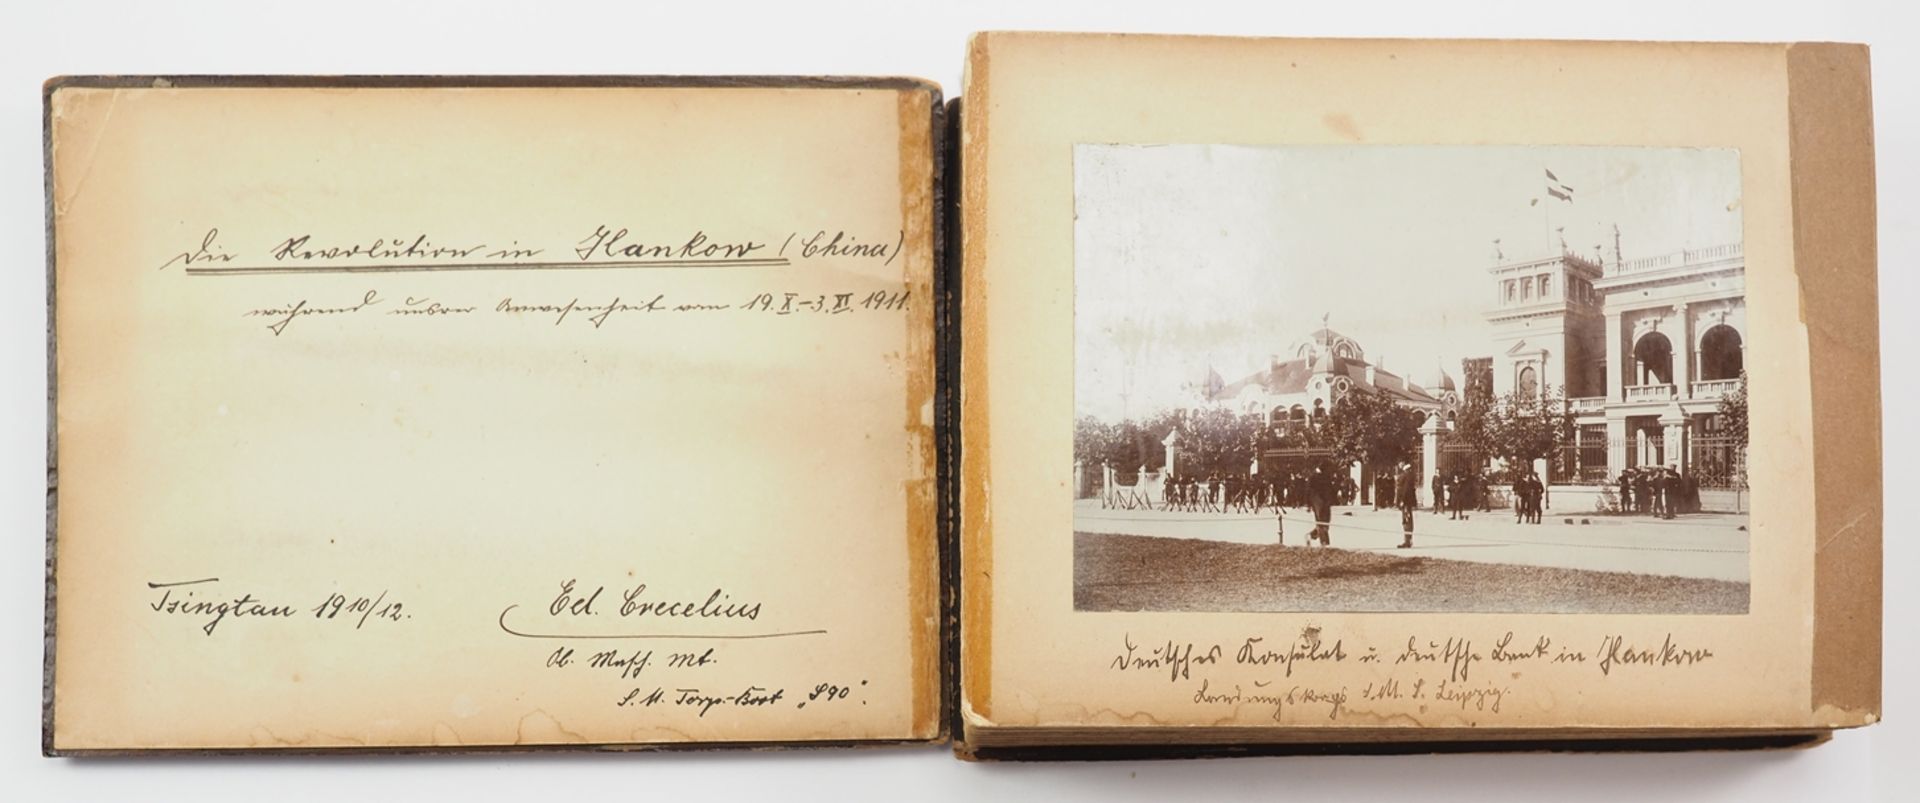 Die Revolution in Hankow (China)
während unsrer Anwesenheit vom 19.X.-3.XI.1911.
Tsingtau 1910/12.
Ed. Crecelius
Ob. Masch. Mt.
S. M. Torp.-Boot „S90".
Deutsches Konsulat u. deutsche Bank in Hankow
Landungskorps S.M.S. Leipzig.